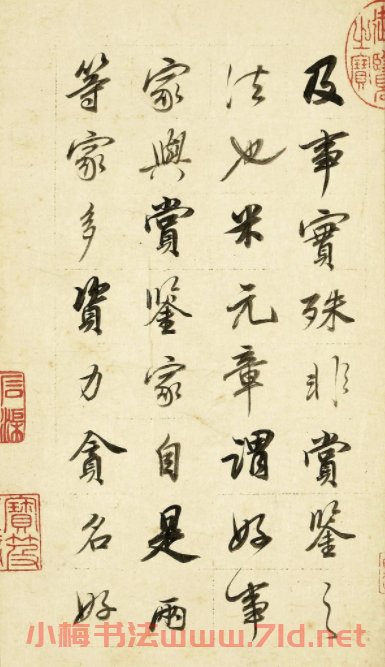 及事實殊非賞鑒之
法也米元章謂好事
家與賞鑒家自是兩
等家多資力貪名好
御覽之寶
小梅书法www.7ld.net